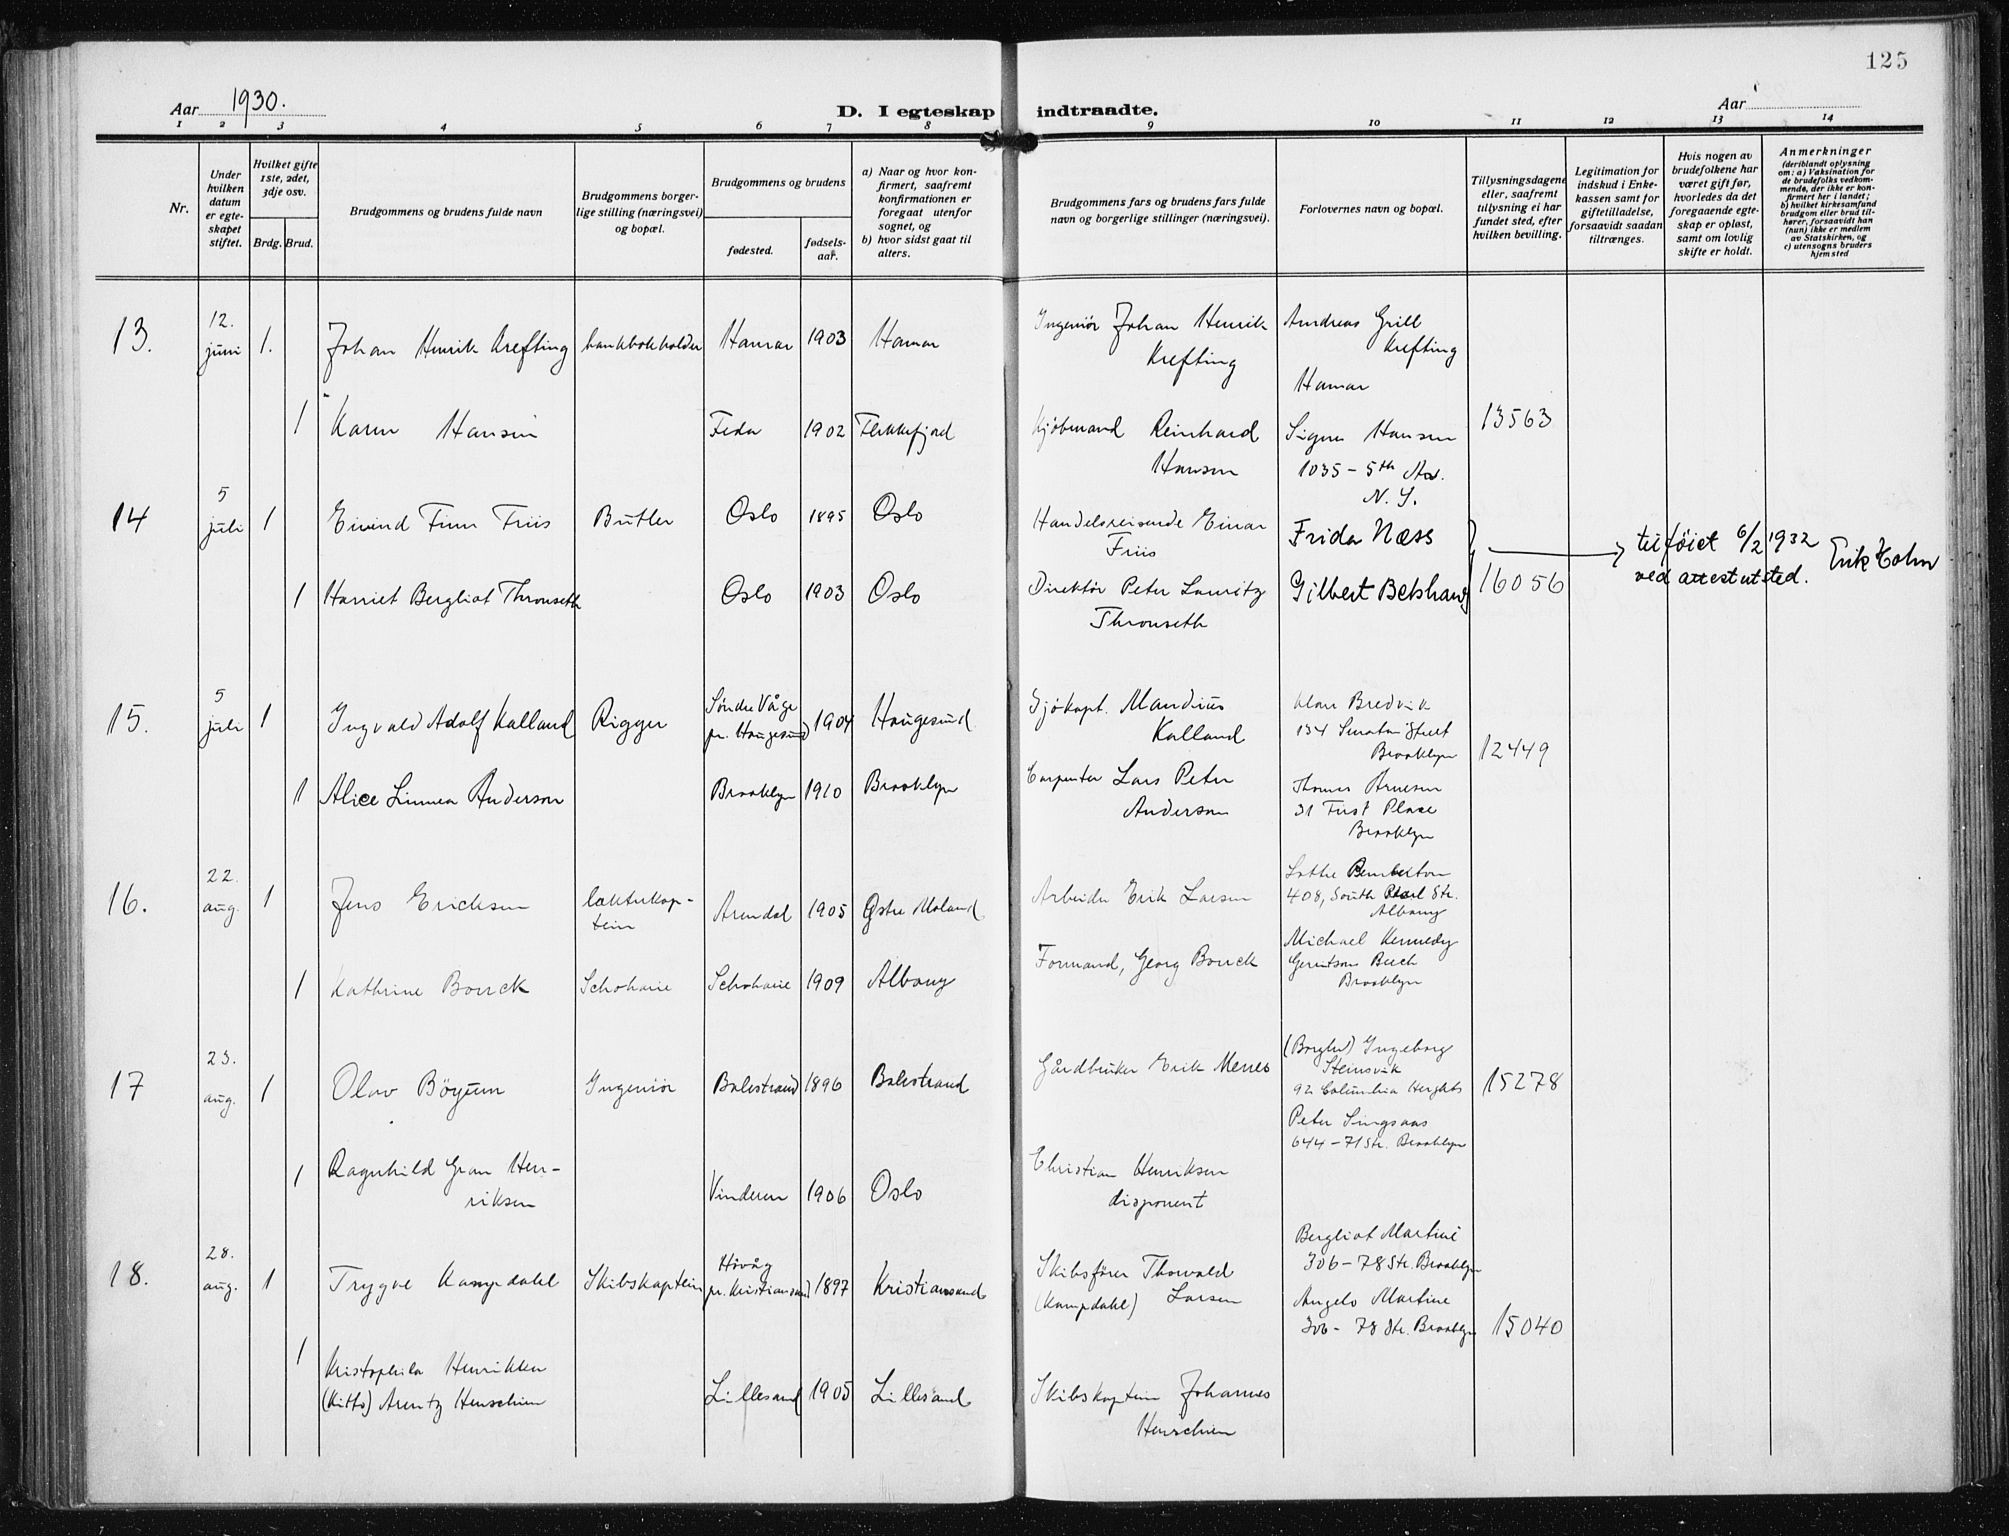 125
Aar 1930.
D. I egteskap indtraadte.
Aar
1 2 3 4 5 6 7 8 9 10 11 12 13 14
Nr.
Under hvilken datum er egteskapet stiftet.
Hvilket gifte 1ste, 2det, 3dje osv.
Brdg. Brud.
Brudgommens og brudens fulde navn
Brudgommens borgerlige stilling (næringsvei) og bopæl.
Brudgommens og brudens
fødested.
fødselsaar.
a) Naar og hvor konfirmert, saafremt konfirmationen er foregaat utenfor sognet, og
b) hvor sidst gaat til alters.
Brudgommens fars og brudens fars fulde navn og borgerlige stillinger (næringsvei).
Forlovernes navn og bopæl.
Tillysningsdagene eller, saafremt tillysning ei har fundet sted, efter hvilken bevilling.
Legitimation for indskud i Enkekassen samt for giftetilladelse, forsaavidt saadan tiltrænges.
Hvis nogen av brudefolkene har været gift før, hvorledes da det foregaaende egteskap er opløst, samt om lovlig skifte er holdt.
Anmerkninger
(deriblandt oplysning om: a) Vaksination for de brudefolks vedkommende, der ikke er konfirmert her i landet;
b) hvilket kirkesamfund brudgom eller brud tilhører, forsaavidt han (hun) ikke er medlem av Statskirken, og
c) utensogns bruders hjemsted
13. 12. juni 1. Johan Henrik Krefting bankbokholder Hamar 1903 Hamar Ingeniör Johan Henrik Krefting Andreas Grill Krefting Hamar
1 Karen Hansen Feda 1902 Flekkefjord Kjöbmand Reinhard Hansen Signe Hansen 1035 - 5th Av. N.Y. 13563
14 5 juli 1 Eivind Finn Friis Butler Oslo 1895 Oslo Handelsreisende Einar Friis Frida Næss
1 Harriet Bergliot Thronseth Oslo 1903 Oslo Direktör Peter Lauritz Thronseth Gilbert Betshang 16056
tilføiet 6/2 1932 ved attest utsted. Erik Holm
15. 5 juli 1 Ingvald Adolf Kalland Rigger Söndre Våge pr. Haugesund 1904 Haugesund Sjökapt. Mandius Kalland Klare Bredvik 134 Senator Street Brooklyn 12449
1 Alice Linnea Anderson Brooklyn 1910 Brooklyn Carpenter Lars Peter Anderson Thomas Arnesen 31 First Place Brooklyn
16. 22. aug. 1 Jens Ericksen lekterkaptein Arendal 1905 Østre Moland Arbeider Erik Larsen Lottie Pemberton 408, South Pearl Str. Albany
1 Kathrine Bouck Schoharie Schoharie 1909 Albany Formand, Georg Bouck Michael Kennedy Gerritsen Beach Brooklyn
17 23. aug. 1 Olav Böyum Ingeniör Balestrand 1896 Balestrand Gårdbruker Erik Menes (Borghd) Ingeborg Steinsvik 92 Columbia Heights 15278
Peter Singsaas 644 - 71 Str. Brooklyn
1 Ragnhild Gran Henriksen Vinderen 1906 Oslo Christian Henriksen disponent
18. 28. aug. 1 Trygve Kampdahl Skibskaptein Hövåg pr. Kristiansand 1897 Kristiansand Skibsförer Thorvald (Kampdahl) Larsen Bergliot Martine 306 - 78 Str. Brooklyn
Angelo Martine 306 - 78 Str. Brooklyn 15040
1 Kristophila Henrikke (Kitto) Arentz Henschien Lillesand 1905 Lillesand Skibskaptein Johannes Henschien